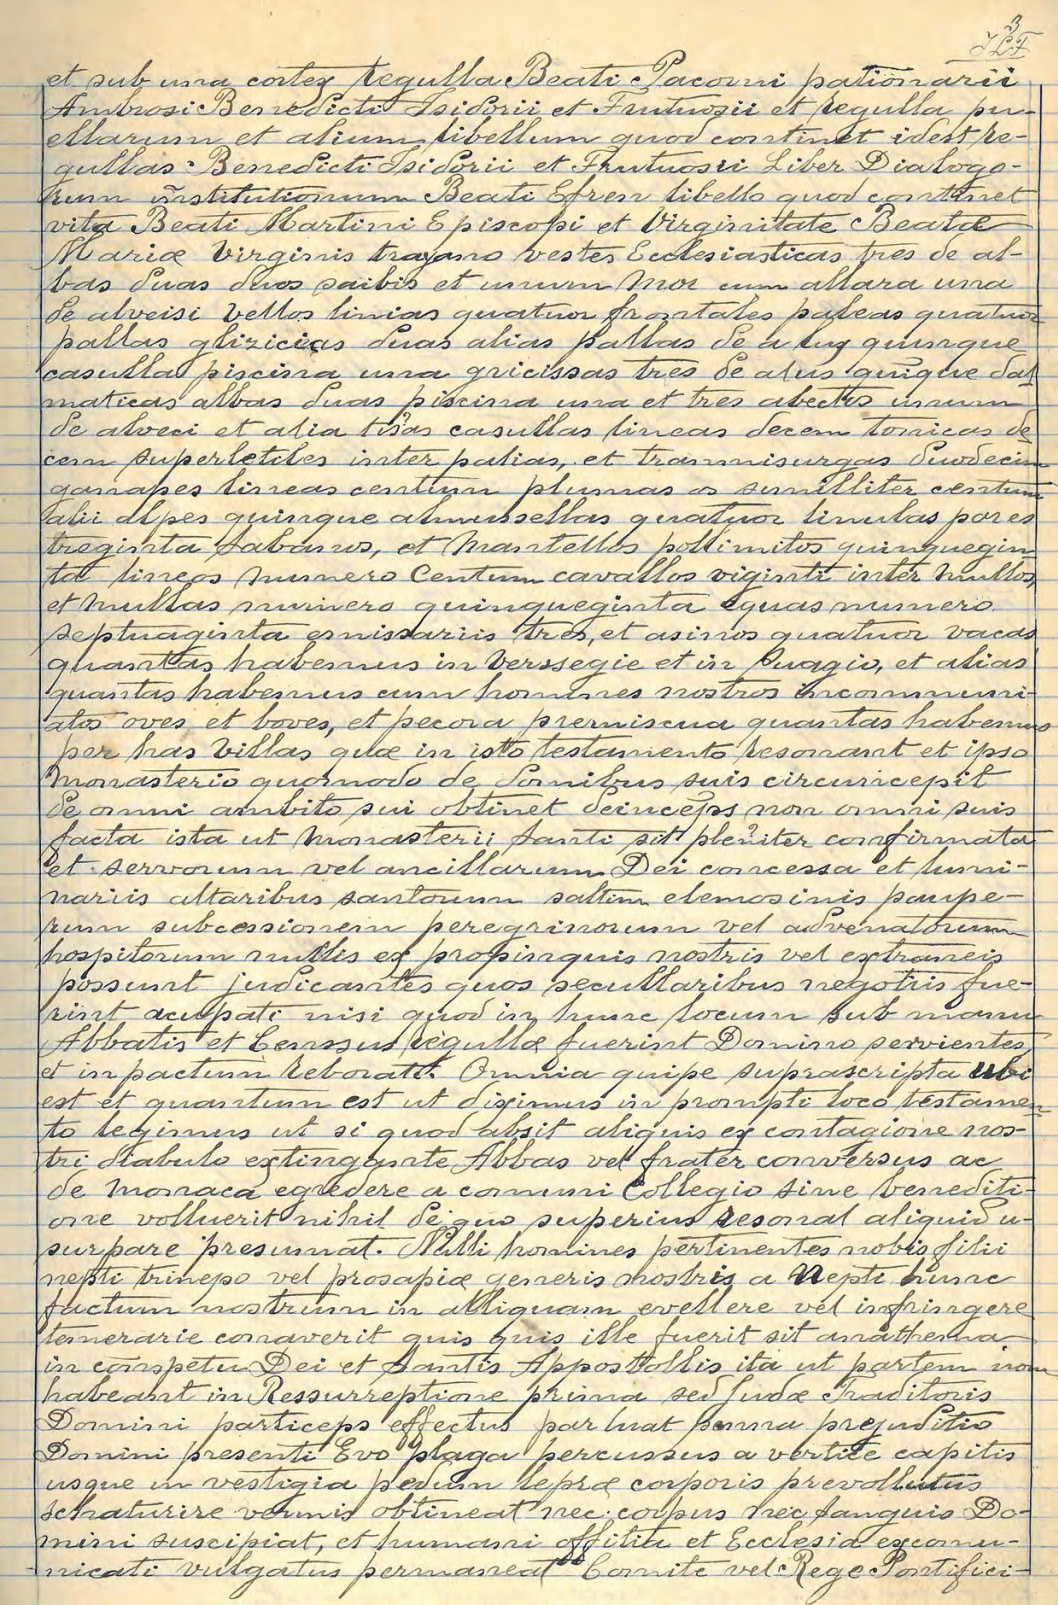 3
et sub una cortex regulla Beati Pacomi pationarii
Ambrosi Benedicti Isidorii et Frutuosii et regulla pu-
ellarum et alium libellum quod continet idest re-
gullas Benedicti Isidorii et Frutuosii Liber Dialogo-
rum institutionum Beati Efren libello quod continet
vita Beati Martini Episcopi et Virginitate Beatæ
Mariæ Virginis trayano vestes Ecclesiasticas tres de al-
bas duas duos saibis et unum mor cum allara una
de alveisi vellos linias quatuor frontales paleas quatuor
pallas glizicias duas alias pallas de a lux quinque
casulla piscina una gricissas tres de alus quinque dal
maticas albas duas piscina una et tres abectos unum
de alveci et alia tisas casullas lineas decem tonicas de
cem superletiles inter palias, et tramnisurgas duodecim
ganapes lineas centum plumas os similliter centum
alii alpes quinque almussellas quatuor linulas pares
treginta sabanos, et mantellos pollimitos quinquegin
ta lineos numero Centum cavallos viginti inter mullos
et mullas numero quinqueginta equas numero
septuaginta emissariis tres, et asinos quatuor vacas
quantas habemus in Verssegie et in Suagio, et alias
quantas habemus cum homines nostros incommuni-
atos oves et boves, et pecora premiscua quantas habemus
per has villas quæ in isto testamento resonant et ipso
monasterio quomodo de domibus suis circuncepit
de omni ambito sui obtinet deinceps non omni suis
facta ista ut monasterii santi sit pleniter confirmata
et servorum vel ancillarum Dei concessa et lumi-
nariis altaribus santorum saltim elemosinis paupe-
rum subcessionem peregrinorum vel advenatorum
hospitorum nullis ex propinquis nostris vel extraneis
possunt judicantes quos secullaribus negotris fue-
rint acupati nisi quod in hunc locum sub manu
Abbatis et Censsus regullæ fuerint Domino servientes
et in pactum reboratt. Omnia quipe suprascripta ubi
est et quantum est ut diximus in prompti loco testamen
to legimus ut si quod absit aliquis ex contagione nos-
tri diabulo extinguante Abbas vel frater conversus ac
de monaca egredere a comuni Collegio sine benediti-
one volluerit nihil de quo superius resonat aliquid u-
surpare presumat. Nulli homines pertinentes nobis filii
nepti trinepo vel prosapiæ generis nostris a Nepti hunc
factum nostrum in alliquam evellere vel infringere
temerarie conaverit quis quis ille fuerit sit anathema
in conspetu Dei et Santis Appostollis ita ut partem non
habeant in Ressurreptione prima sed Judæ Traditoris
Domini particeps effectus par luat pena prejuditio
Domini presenti Evo plaga percussus a vertice capitis
usque in vestigia pedum lepræ corporis prevollutus
schaturire vermis obtineat nec corpus nec sanguis Do-
mini suscipiat, et humani offitia et Ecclesia excomu-
nicati vulgatus permaneat Comite vel Rege Pontifici-